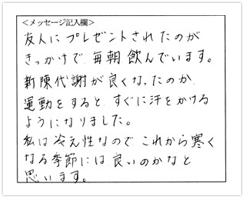 <メッセージ記入欄>
友人にプレゼントされたのが
きっかけで毎朝飲んでいます。
新陳代謝が良くなったのか
運動をすると、すぐに汗をかける
ようになりました。
私は冷え性なのでこれから寒く
なる季節には良いのかなと
思います。